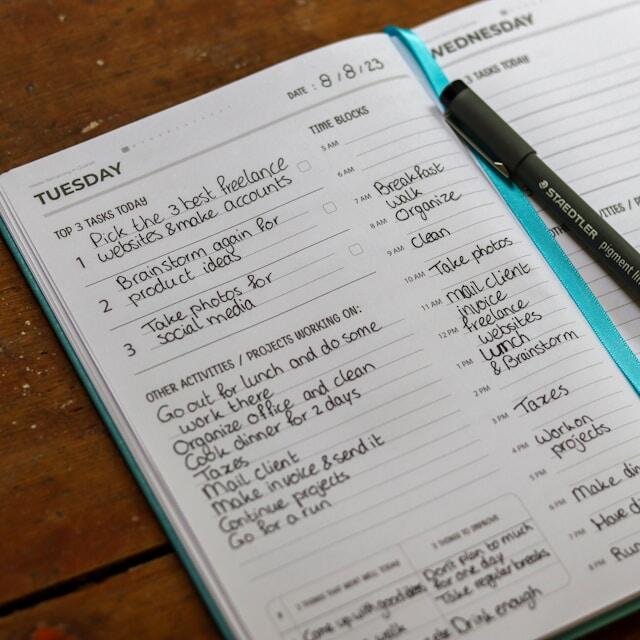 TUESDAY
DATE: 8/8/23
TOP 3 TASKS TODAY
1 Pick the 3 best freelance
websites & make accounts
2 Brainstorm again for
product ideas
3 Take photos for
social media
OTHER ACTIVITIES / PROJECTS WORKING ON:
Go out for lunch and do some
work there
Organize office and clean
Cook dinner for 2 days
Taxes
Mail client
Make invoice & send it
Continue projects
Go for a run
TIME BLOCKS
5 AM
6 AM
7 AM Breakfast
walk
8 AM Organize
9 AM clean
10 AM Take photos
11 AM mail client
invoice
12 PM freelance
websites
1 PM lunch
& Brainstorm
2 PM
3 PM Taxes
4 PM work on
projects
5 PM
6 PM Make
7 PM Have
8 PM Run
3 THINGS THAT WENT WELL TODAY
Come up with good
walk
3 THINGS TO IMPROVE
Dont plan to much
for one day
Take regular breaks
Drink enough
WEDNESDAY
3 TASKS TODAY
STAEDTLER
pigment